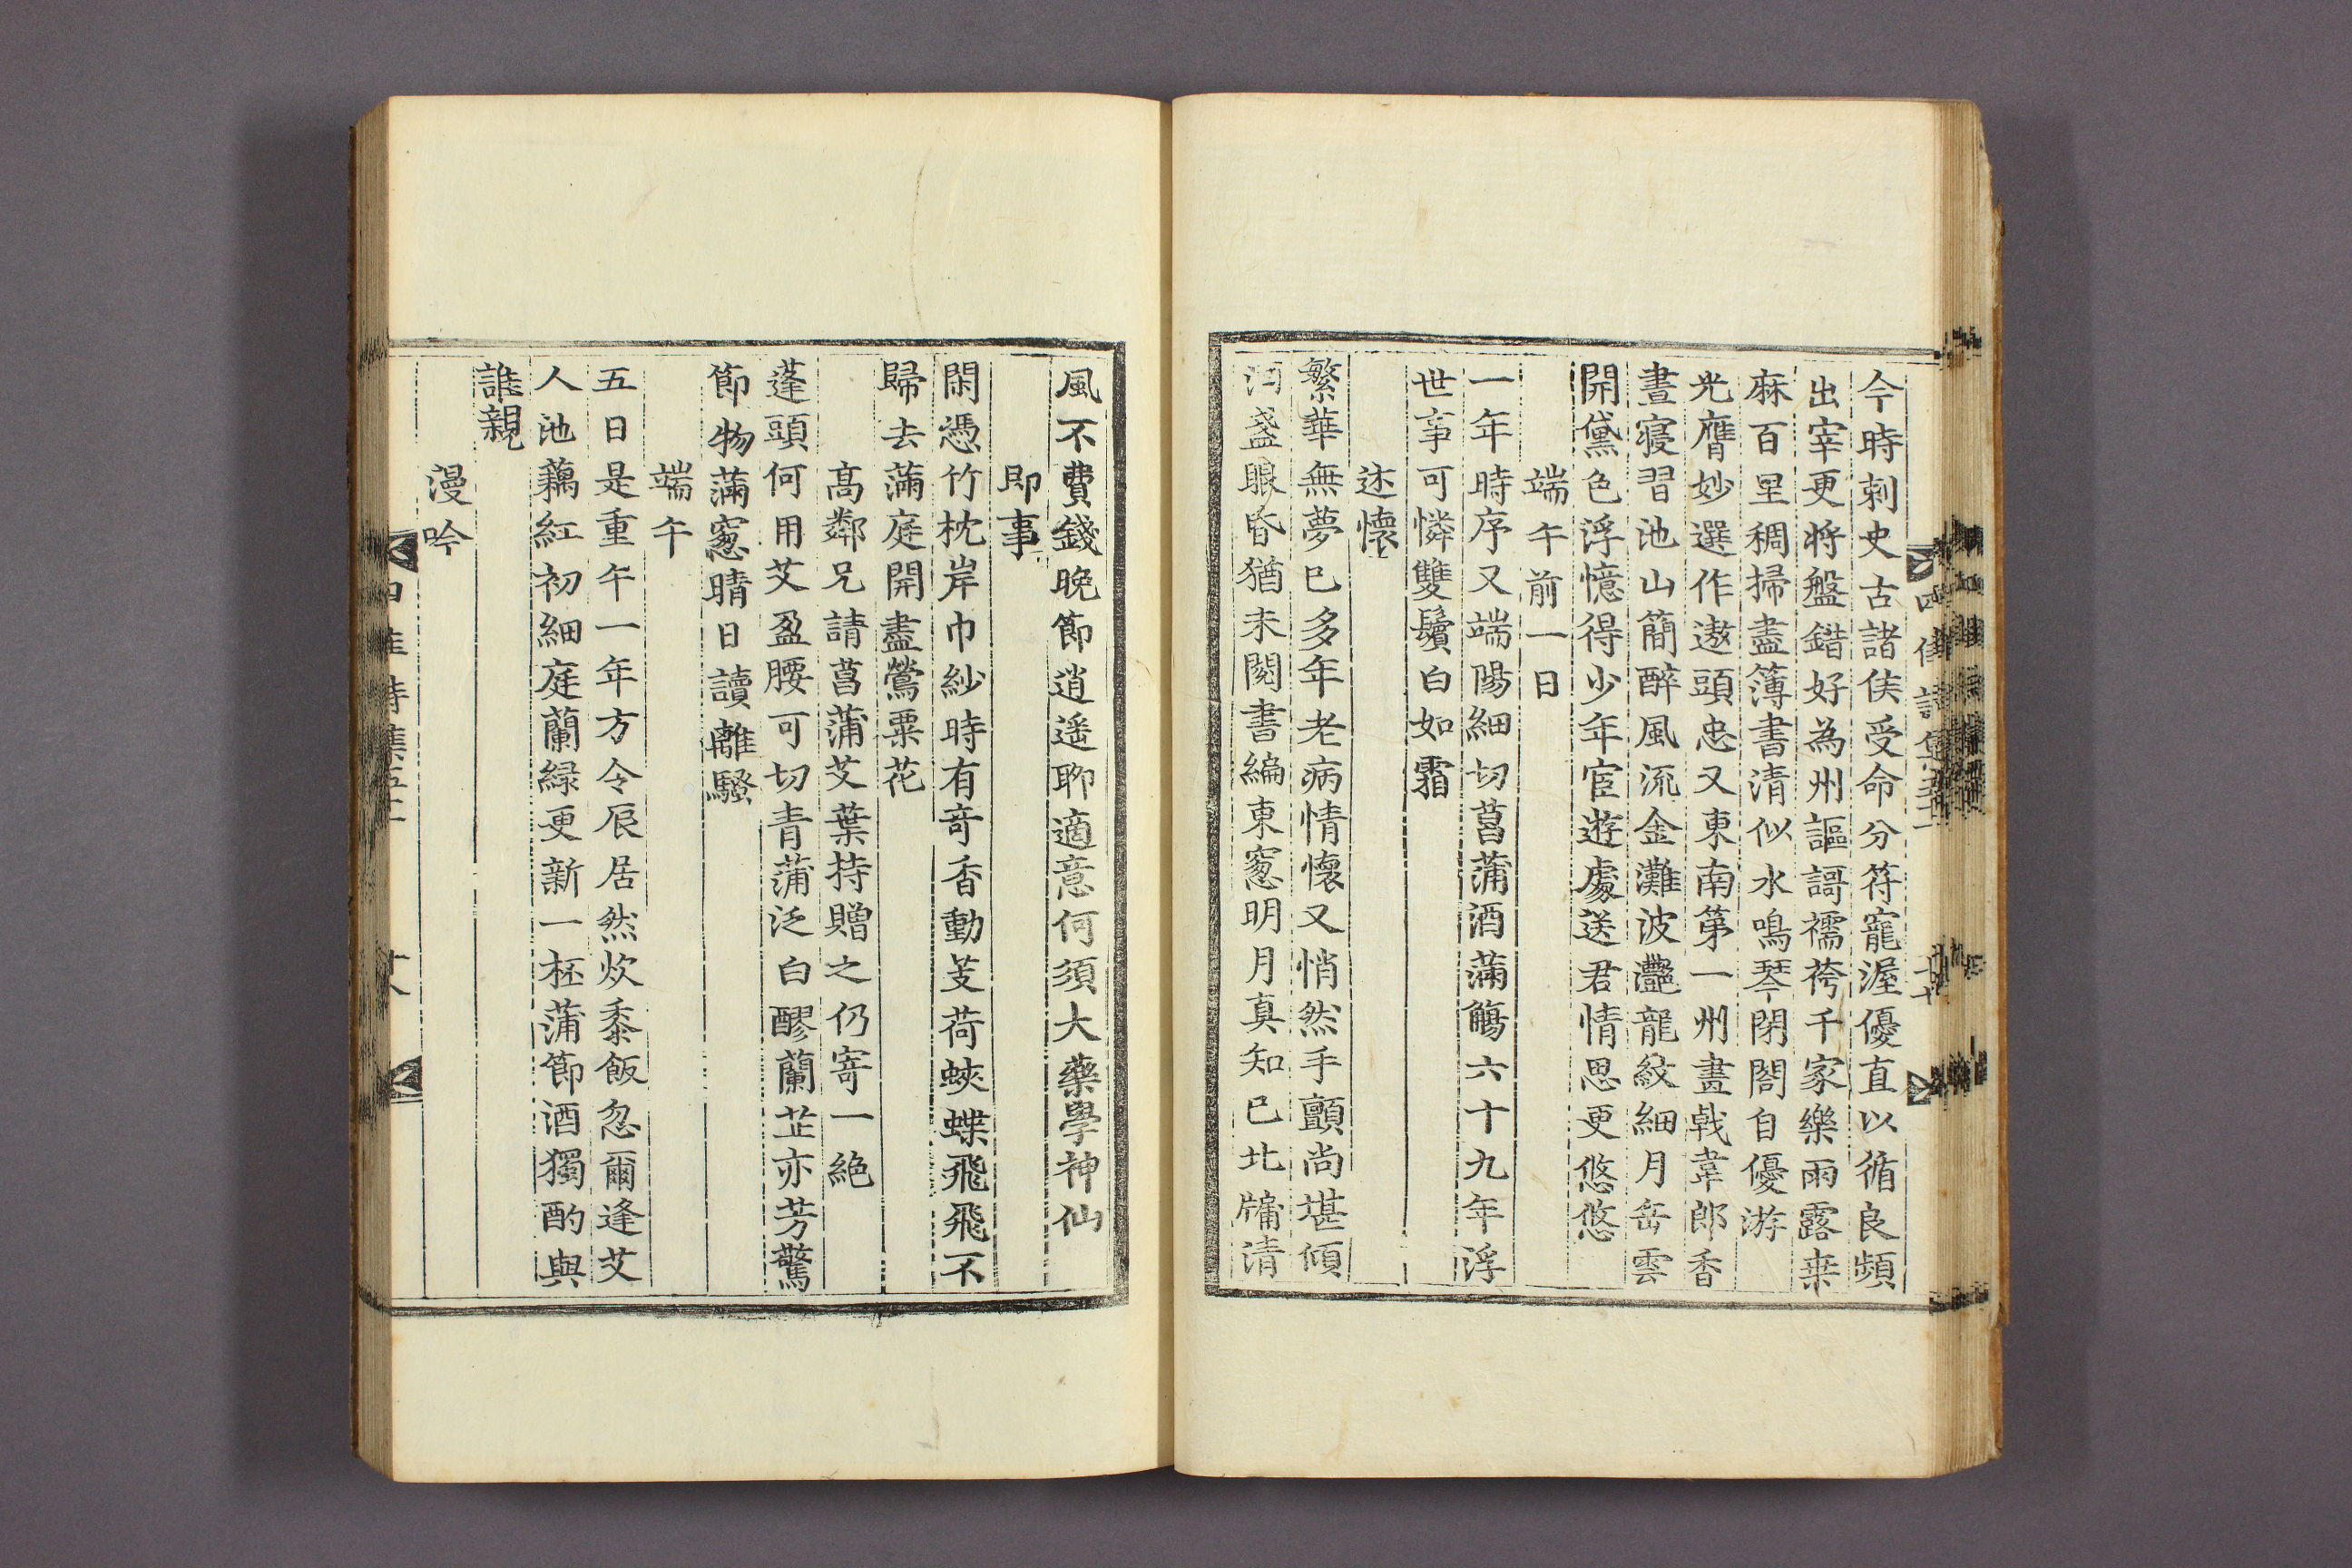 今時刺史古諸侯受命分符寵渥優直以循良頻
出宰更將盤錯好為州謳謌襦袴千家樂雨露桒
麻百里稠掃盡簿書清似水鳴琴閉閤自優游
光膺妙選作遨頭忠又東南第一州畫戟韋郎香
晝寢習池山簡醉風流金灘波灩龍紋細月岳雲
開黛色浮憶得少年宦遊處送君情思更悠悠
端午前一日
一年時序又端陽細切菖蒲酒滿觴六十九年浮
世事可憐雙鬢白如霜
述懷
繁華無夢已多年老病情懷又悄然手顫尚堪傾
酒盞眼昏猶未閱書編東窓明月真知已北牖清
風不費錢晚節逍遥聊適意何須大藥學神仙
即事
閑憑竹枕岸巾紗時有竒香動芰荷蛺蝶飛飛不
歸去滿庭開盡鶯粟花
高鄰兄請菖蒲艾葉持贈之仍寄一絶
蓬頭何用艾盈腰可切青蒲泛白醪蘭芷亦芳驚
節物滿窓晴日讀離騷
端午
五日是重午一年方令辰居然炊黍飯忽爾逢艾
人池藕紅初細庭蘭緑更新一杯蒲節酒獨酌與
誰親
漫吟
四佳詩集五十